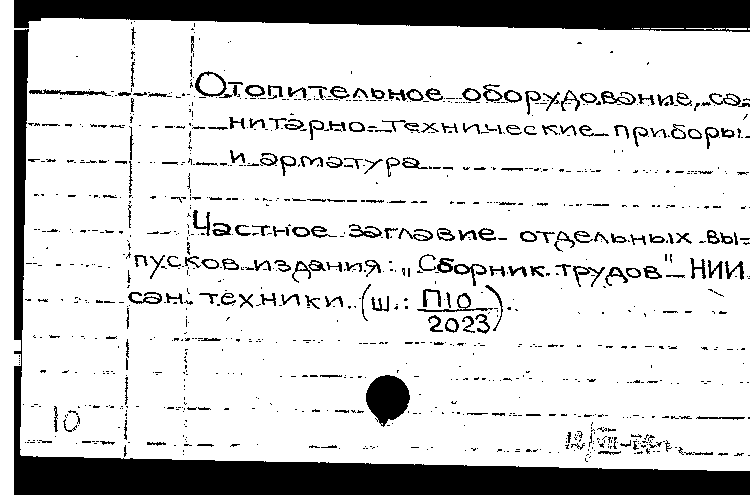 Отопительное оборудование, са-
нитарно-технические приборы
и арматура
Частное заглавие отдельных вы-
пусков издания: „Сборник трудов" НИИ
сан. техники. (Ш.: П10
2023).
10